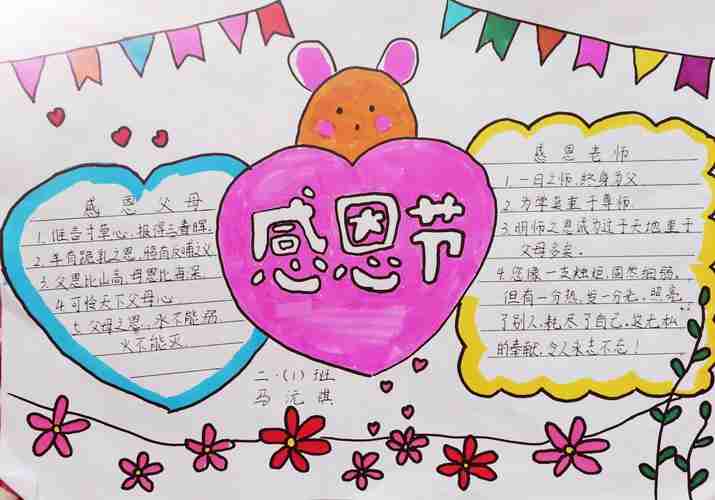 感恩父母
1.谁言寸草心,报得三春晖.
2.羊有跪乳之恩,鸦有反哺义
3.父恩比山高,母恩比海深
4.可怜天下父母心
5.父母之恩,水不能溺,
火不能灭.
感恩节
二·(1)班
马沅祺
感恩老师
1.一日之师,终身为父
2.为学莫重于尊师.
3.明师之恩诚为过于天地,重于
父母多矣.
4.您像一支蜡烛,固然细弱,
但有一分热,发一分光,照亮
了别人,耗尽了自己.这无私
的奉献,令人永志不忘!